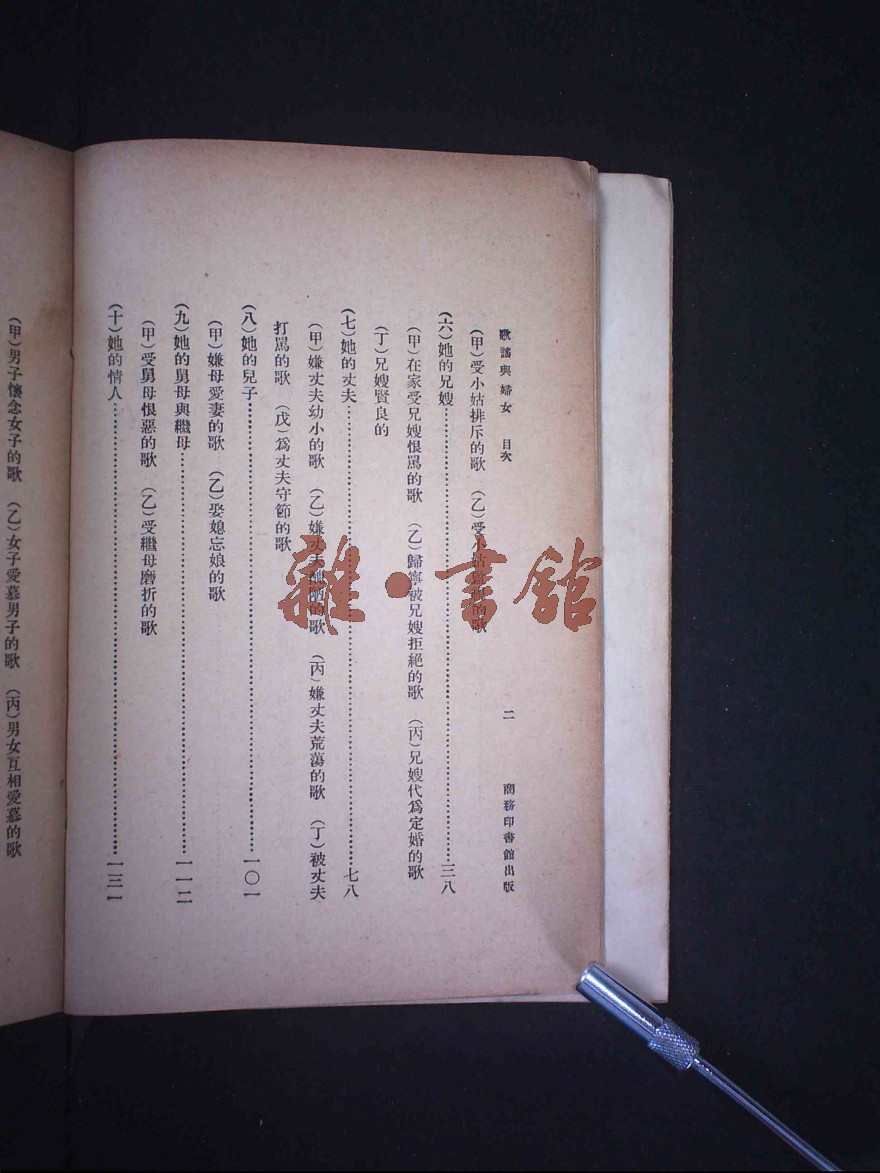 歌謠與婦女　目次　二　商務印書館出版
（甲）受小姑排斥的歌　（乙）受小姑的歌
（六）她的兄嫂…………三八
（甲）在家受兄嫂恨罵的歌　（乙）歸寧被兄嫂拒絕的歌　（丙）兄嫂代爲定婚的歌
（丁）兄嫂賢良的
（七）她的丈夫…………七八
（甲）嫌丈夫幼小的歌　（乙）嫌丈夫的歌　（丙）嫌丈夫荒蕩的歌　（丁）被丈夫
打罵的歌　（戊）爲丈夫守節的歌
（八）她的兒子…………一〇一
（甲）嫌母愛妻的歌　（乙）娶媳忘娘的歌
（九）她的舅母與繼母…………一一二
（甲）受舅母恨惡的歌　（乙）受繼母磨折的歌
（十）她的情人…………一三一
（甲）男子懷念女子的歌　（乙）女子愛慕男子的歌　（丙）男女互相愛慕的歌
雜・書館